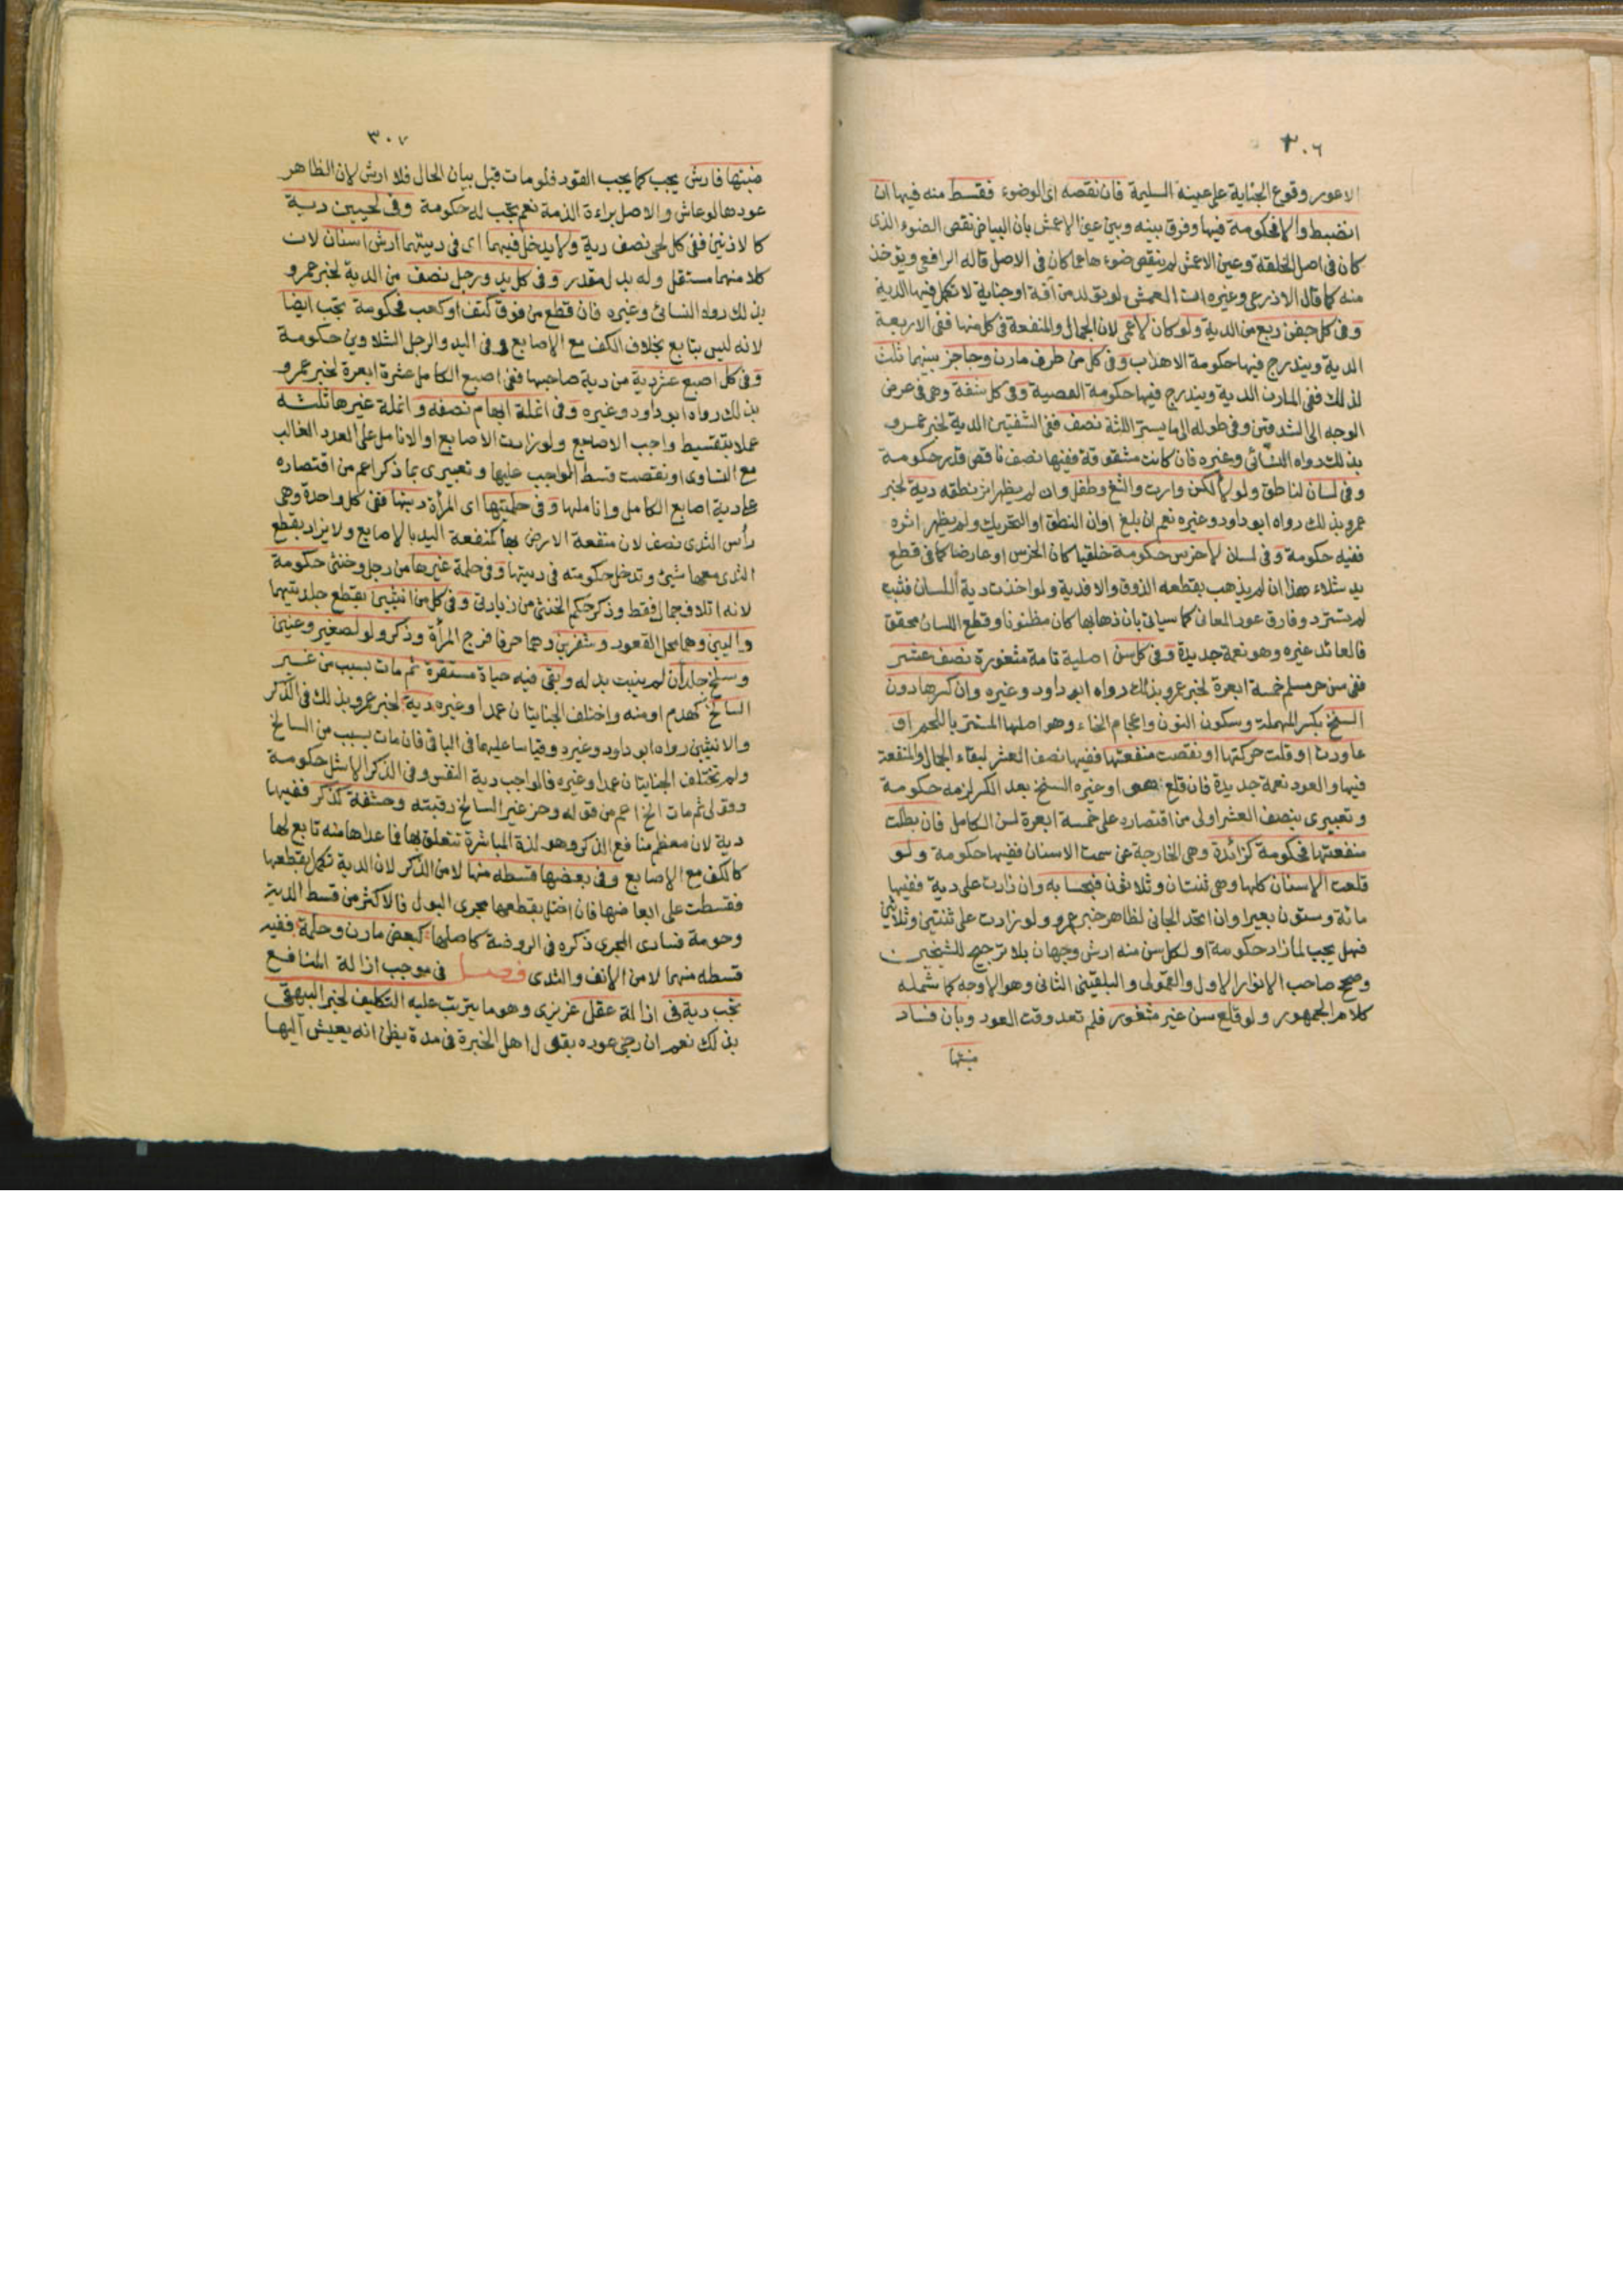 ٣٠٦
الاعور وقوع الجناية على عينه السليمة فان نقصه اى الوضوء فقسط منه فيها ان
انضبط والا فحكومة فيها وفرق بينه وبين عين الاعمش بان البياض نقص الضوء الذى
كان فى اصل الخلقة وعين الاعمش لم ينقص ضوءها عما كان فى الاصل قاله الرافعى ويؤخذ
منه كما قال الاذرعى وغيره ان العمش لو تولد من آفة او جناية لا تكمل فيها الدية
وفى كل جفن ربع من الدية ولو كان لاعمى لان الجمال والمنفعة فى كل منها ففى الاربعة
الدية ويندرج فيها حكومة الاهداب وفى كل من طرف مارن وحاجز بينهما ثلث
لذلك ففى المارن الدية ويندرج فيها حكومة القصبة وفى كل شفة وهى فى عرض
الوجه الى الشدقين وفى طوله الى ما يستر اللثة نصف ففى الشفتين الدية لخبر عمرو
بذلك رواه النسائى وغيره فان كانت مشقوقة ففيها نصف ناقص قدر حكومة
وفى لسان لناطق ولو لالكن وارت والثغ وطفل وان لم يظهر اثر نطقه دية لخبر
عمرو بذلك رواه ابو داود وغيره نعم ان بلغ اوان النطق او التحريك ولم يظهر اثره
ففيه حكومة وفى لسان لاخرس حكومة خلقيا كان الخرس او عارضا كما فى قطع
يد شلاء هذا ان لم يذهب بقطعه الذوق والا فدية ولو اخذت دية اللسان فنبت
لم تسترد وفارق عود المعانى كما سياتى بان ذهابها كان مظنونا وقطع اللسان محقق
فالعائد غيره وهو نعمة جديدة وفى كل سن اصلية تامة مثغورة نصف عشر
ففى سن حر مسلم خمسة ابعرة لخبر عمرو بذلك رواه ابو داود وغيره وان كسرها دون
السنخ بكسر المهملة وسكون النون واعجام الخاء وهو اصلها المستتر باللحم او
عادت او قلت حركتها او نقصت منفعتها ففيها نصف العشر لبقاء الجمال والمنفعة
فيها والعود نعمة جديدة فان قلع هو او غيره السنخ بعد الكسر لزمه حكومة
وتعبيرى بنصف العشر اولى من اقتصاره على خمسة ابعرة لسن الكامل فان بطلت
منفعتها فحكومة كزائدة وهى الخارجة عن سمت الاسنان ففيها حكومة ولو
قلعت الاسنان كلها وهى ثنتان وثلاثون فبحسابه وان زادت على دية ففيها
مائة وستون بعيرا وان اتحد الجانى لظاهر خبر عمرو ولو زادت على ثنتين وثلاثين
فهل يجب لما زاد حكومة او لكل سن منه ارش وجهان بلا ترجيح للشيخين
وصحح صاحب الانوار الاول والقمولى والبلقينى الثانى وهو الاوجه كما شمله
كلام الجمهور ولو قلع سن غير مثغور فلم تعد وقت العود وبان فساد
منبتها
٣٠٧
منبتها فارش يجب كما يجب القود فلو مات قبل بيان الحال فلا ارش لان الظاهر
عودها لو عاش والاصل براءة الذمة نعم تجب له حكومة وفى لحيين دية
كالاذنين ففى كل لحى نصف دية ولا يدخل فيهما اى فى ديتهما ارش اسنان لان
كلا منهما مستقل وله بدل مقدر وفى كل يد ورجل نصف من الدية لخبر عمرو
بذلك رواه النسائى وغيره فان قطع من فوق كف او كعب فحكومة تجب ايضا
لانه ليس بتابع بخلاف الكف مع الاصابع وفى اليد والرجل الشلاوين حكومة
وفى كل اصبع عشر دية من دية صاحبها ففى اصبع الكامل عشرة ابعرة لخبر عمرو
بذلك رواه ابو داود وغيره وفى انملة ابهام نصفه وانملة غيرها ثلثه
عملا بتقسيط واجب الاصابع ولو زادت الاصابع او الانامل على العدد الغالب
مع التساوى او نقصت قسط الواجب عليها وتعبيرى بما ذكر اعم من اقتصاره
على دية اصابع الكامل واناملها وفى حلمتيها اى المرأة ديتها ففى كل واحدة وهى
رأس الثدى نصف لان منفعة الارضاع بها كمنفعة اليد بالاصابع ولا يزاد بقطع
الثدى معها شيئ وتدخل حكومته فى ديتها وفى حلمة غيرها من رجل وخنثى حكومة
لانه اتلاف جمال فقط وذكر حكم الخنثى من زيادتى وفى كل من انثيين بقطع جلدتيهما
واليين وهما محل القعود وشفرين وهما حرفا فرج المرأة وذكر ولو لصغير وعنين
وسلخ جلد ان لم ينبت بدله وبقى فيه حياة مستقرة ثم مات بسبب من غير
السالخ كهدم او منه واختلف الجنايتان عمدا وغيره دية لخبر عمرو بذلك فى الذكر
والانثيين رواه ابو داود وغيره وقياسا عليهما فى الباقى فان مات بسبب من السالخ
ولم تختلف الجنايتان عمدا وغيره فالواجب دية النفس وفى الذكر الاشل حكومة
وقولى ثم مات الخ اعم من قوله وحز غير السالخ رقبته وحشفة كذكر ففيها
دية لان معظم منافع الذكر وهو لذة المباشرة تتعلق بها فما عداها منه تابع لها
كالكف مع الاصابع وفى بعضها قسطه منها لا من الذكر لان الدية تكمل بقطعها
فقسطت على ابعاضها فان اختل بقطعها مجرى البول فالاكثر من قسط الدية
وحومة فساد المجرى ذكره فى الروضة كاصلها كبعض مارن وحلمة ففيه
قسطه منهما لا من الانف والثدى فصل فى موجب ازالة المنافع
تجب دية فى ازالة عقل غريزى وهو ما يترتب عليه التكليف لخبر البيهقى
بذلك نعم ان رجى عوده بقول اهل الخبرة فى مدة يظن انه يعيش اليها